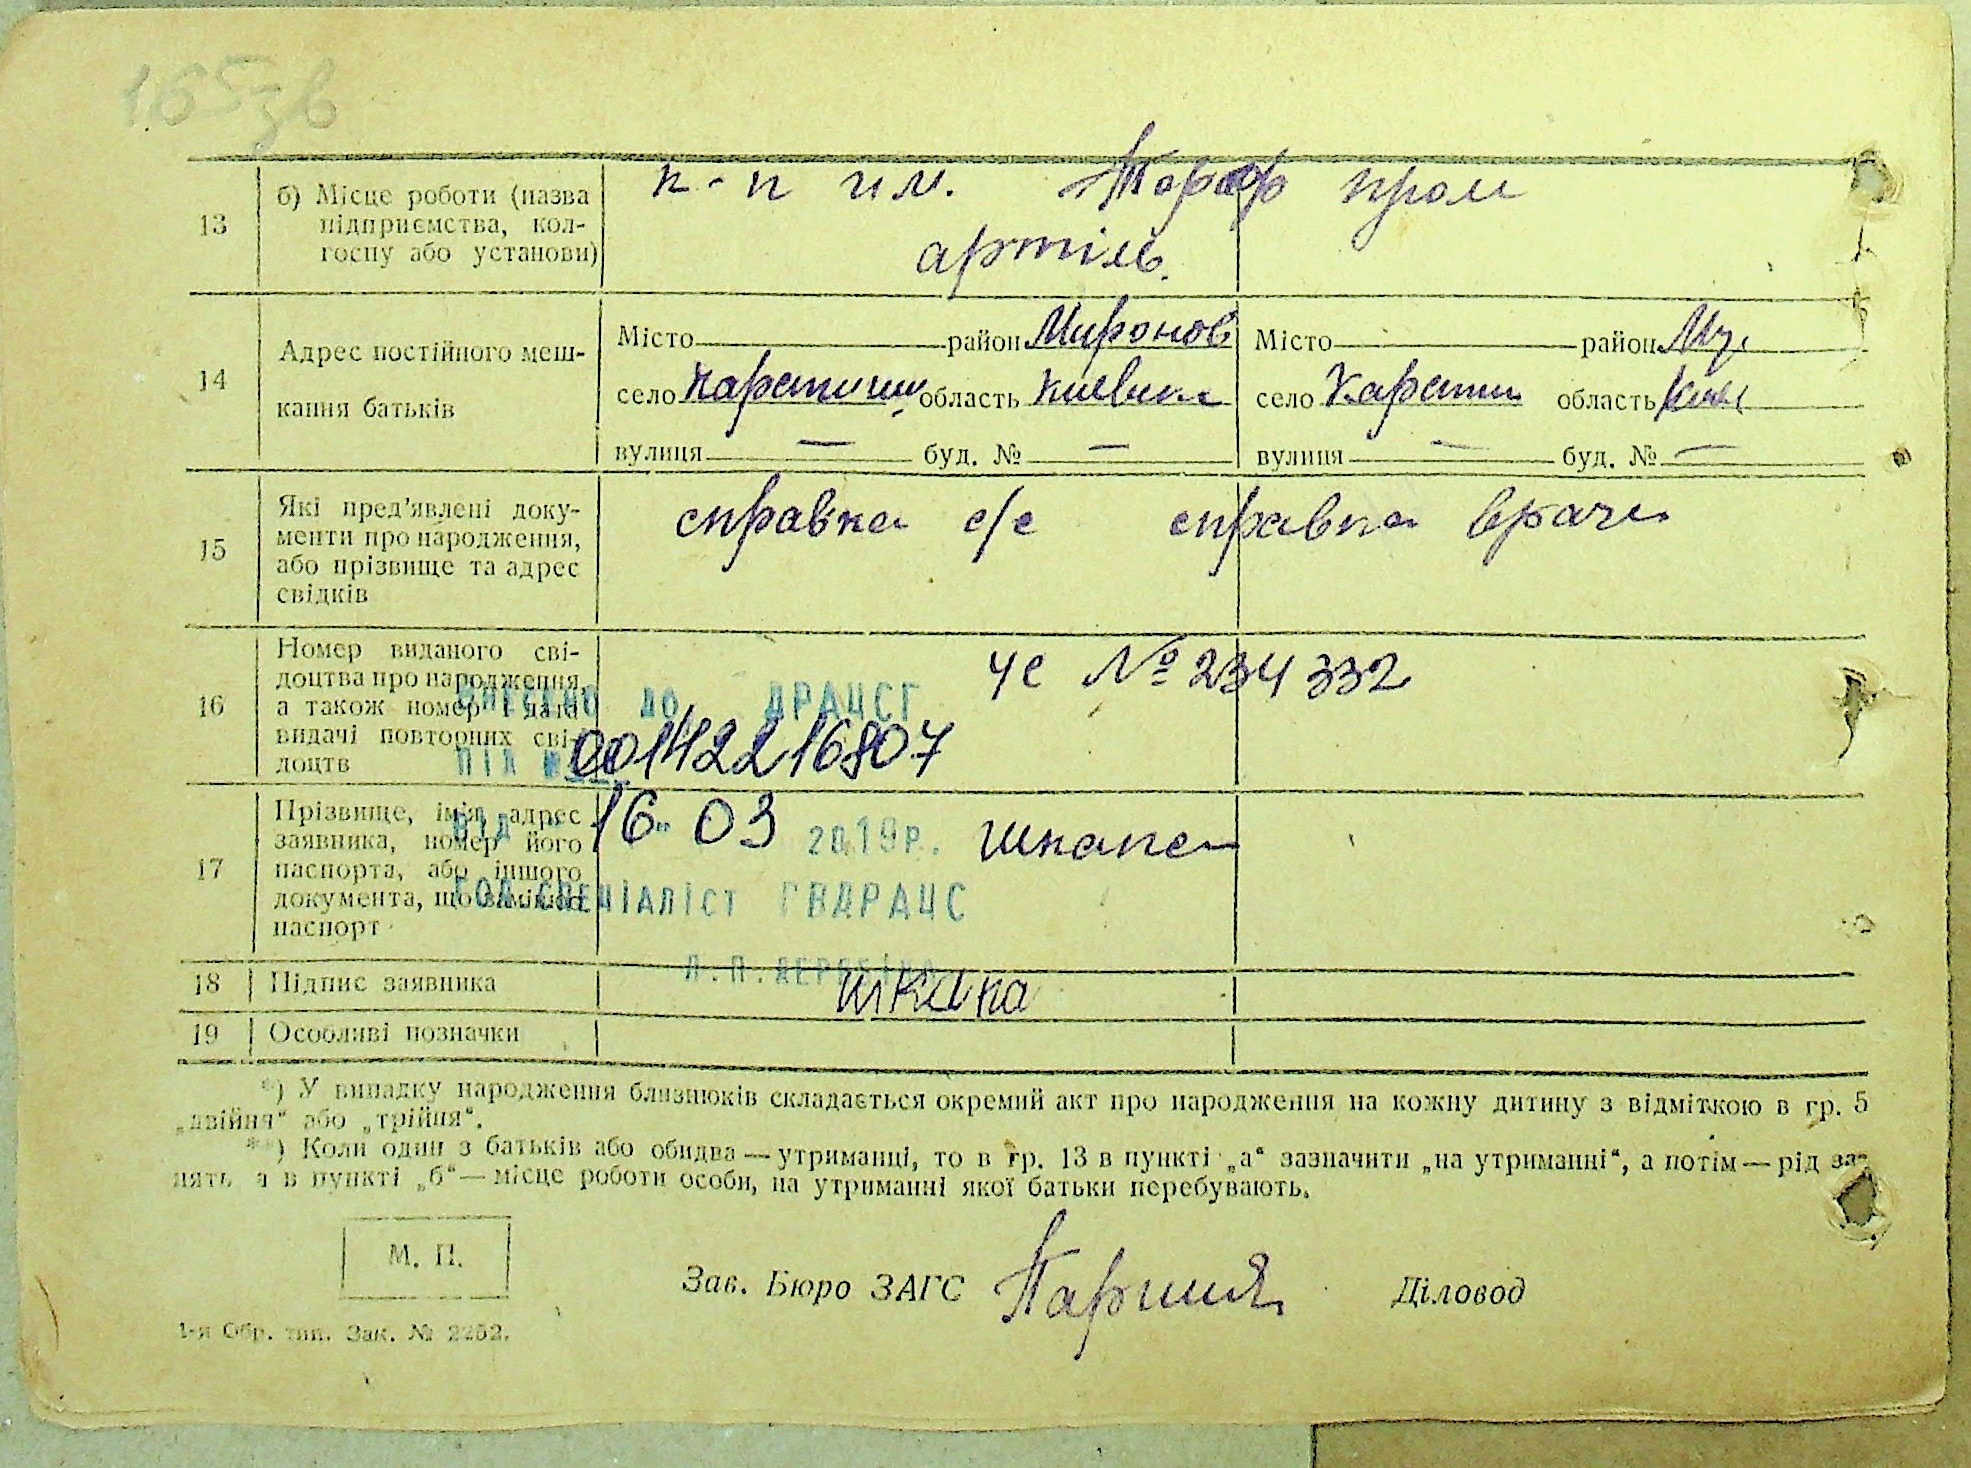 165зв
13
б) Місце роботи (назва
підприємства, кол-
госпу або установи)
к-п им. Торф пром
артіль.
14
Адрес постійного меш-
кання батьків
Місто район Миронов
село Карапиши область Київськ
вулиця — буд. № —
Місто район Ми
село Карапиши область Київ
вулиця — буд. № —
15
Які пред’явлені доку-
менти про народження,
або прізвище та адрес
свідків
справка с/с справка врача
16
Номер виданого сві-
доцтва про народження,
а також номер і дата
видачі повторних сві-
доцтв
ЧС № 234332
ВНЕСЕНО ДО ДРАЦСГ
ПІД № 00142216807
ВІД "16" 03 2019р.
ГОЛ.СПЕЦІАЛІСТ ГВДРАЦС
17
Прізвище, ім’я, адрес
заявника, номер його
паспорта, або іншого
документа, що заміняє
паспорт
Шкапа
18
Підпис заявника
шкапа
19
Особливі позначки
*) У випадку народження близнюків складається окремий акт про народження на кожну дитину з відміткою в гр. 5
„двійня“ або „трійня“.
**) Коли один з батьків або обидва — утриманці, то в гр. 13 в пункті „а“ зазначити „на утриманні“, а потім — рід за-
нять а в пункті „б“ — місце роботи особи, на утриманні якої батьки перебувають.
М. П.
Зав. Бюро ЗАГС
Діловод
1-я Обр. тип. Зак. № 2252.